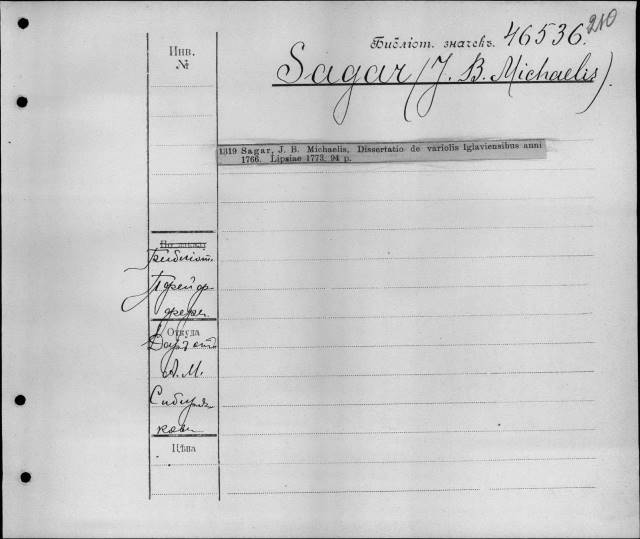 210
Библіот. значекъ. 46536.
Sagar (J. B. Michaelis).
Инв.
№
1319 Sagar, J. B. Michaelis, Dissertatio de variolis Iglaviensibus anni
1766. Lipsiae 1773. 94 p.
Библіот.
Пфейф-
фера
Откуда
Даръ отъ
А. М.
Сибиря-
кова
Цѣна